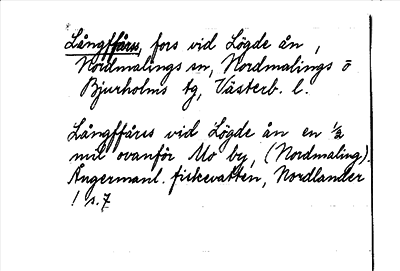 Långffårs, fors vid Lögde ån,
Nordmalings sn, Nordmalings o
Bjurholms tg, Västerb. l.
Långffåres vid Lögde ån en ½
mil ovanför Mo by, (Nordmaling).
Ångermanl. fiskevatten, Nordlander
! s. 7